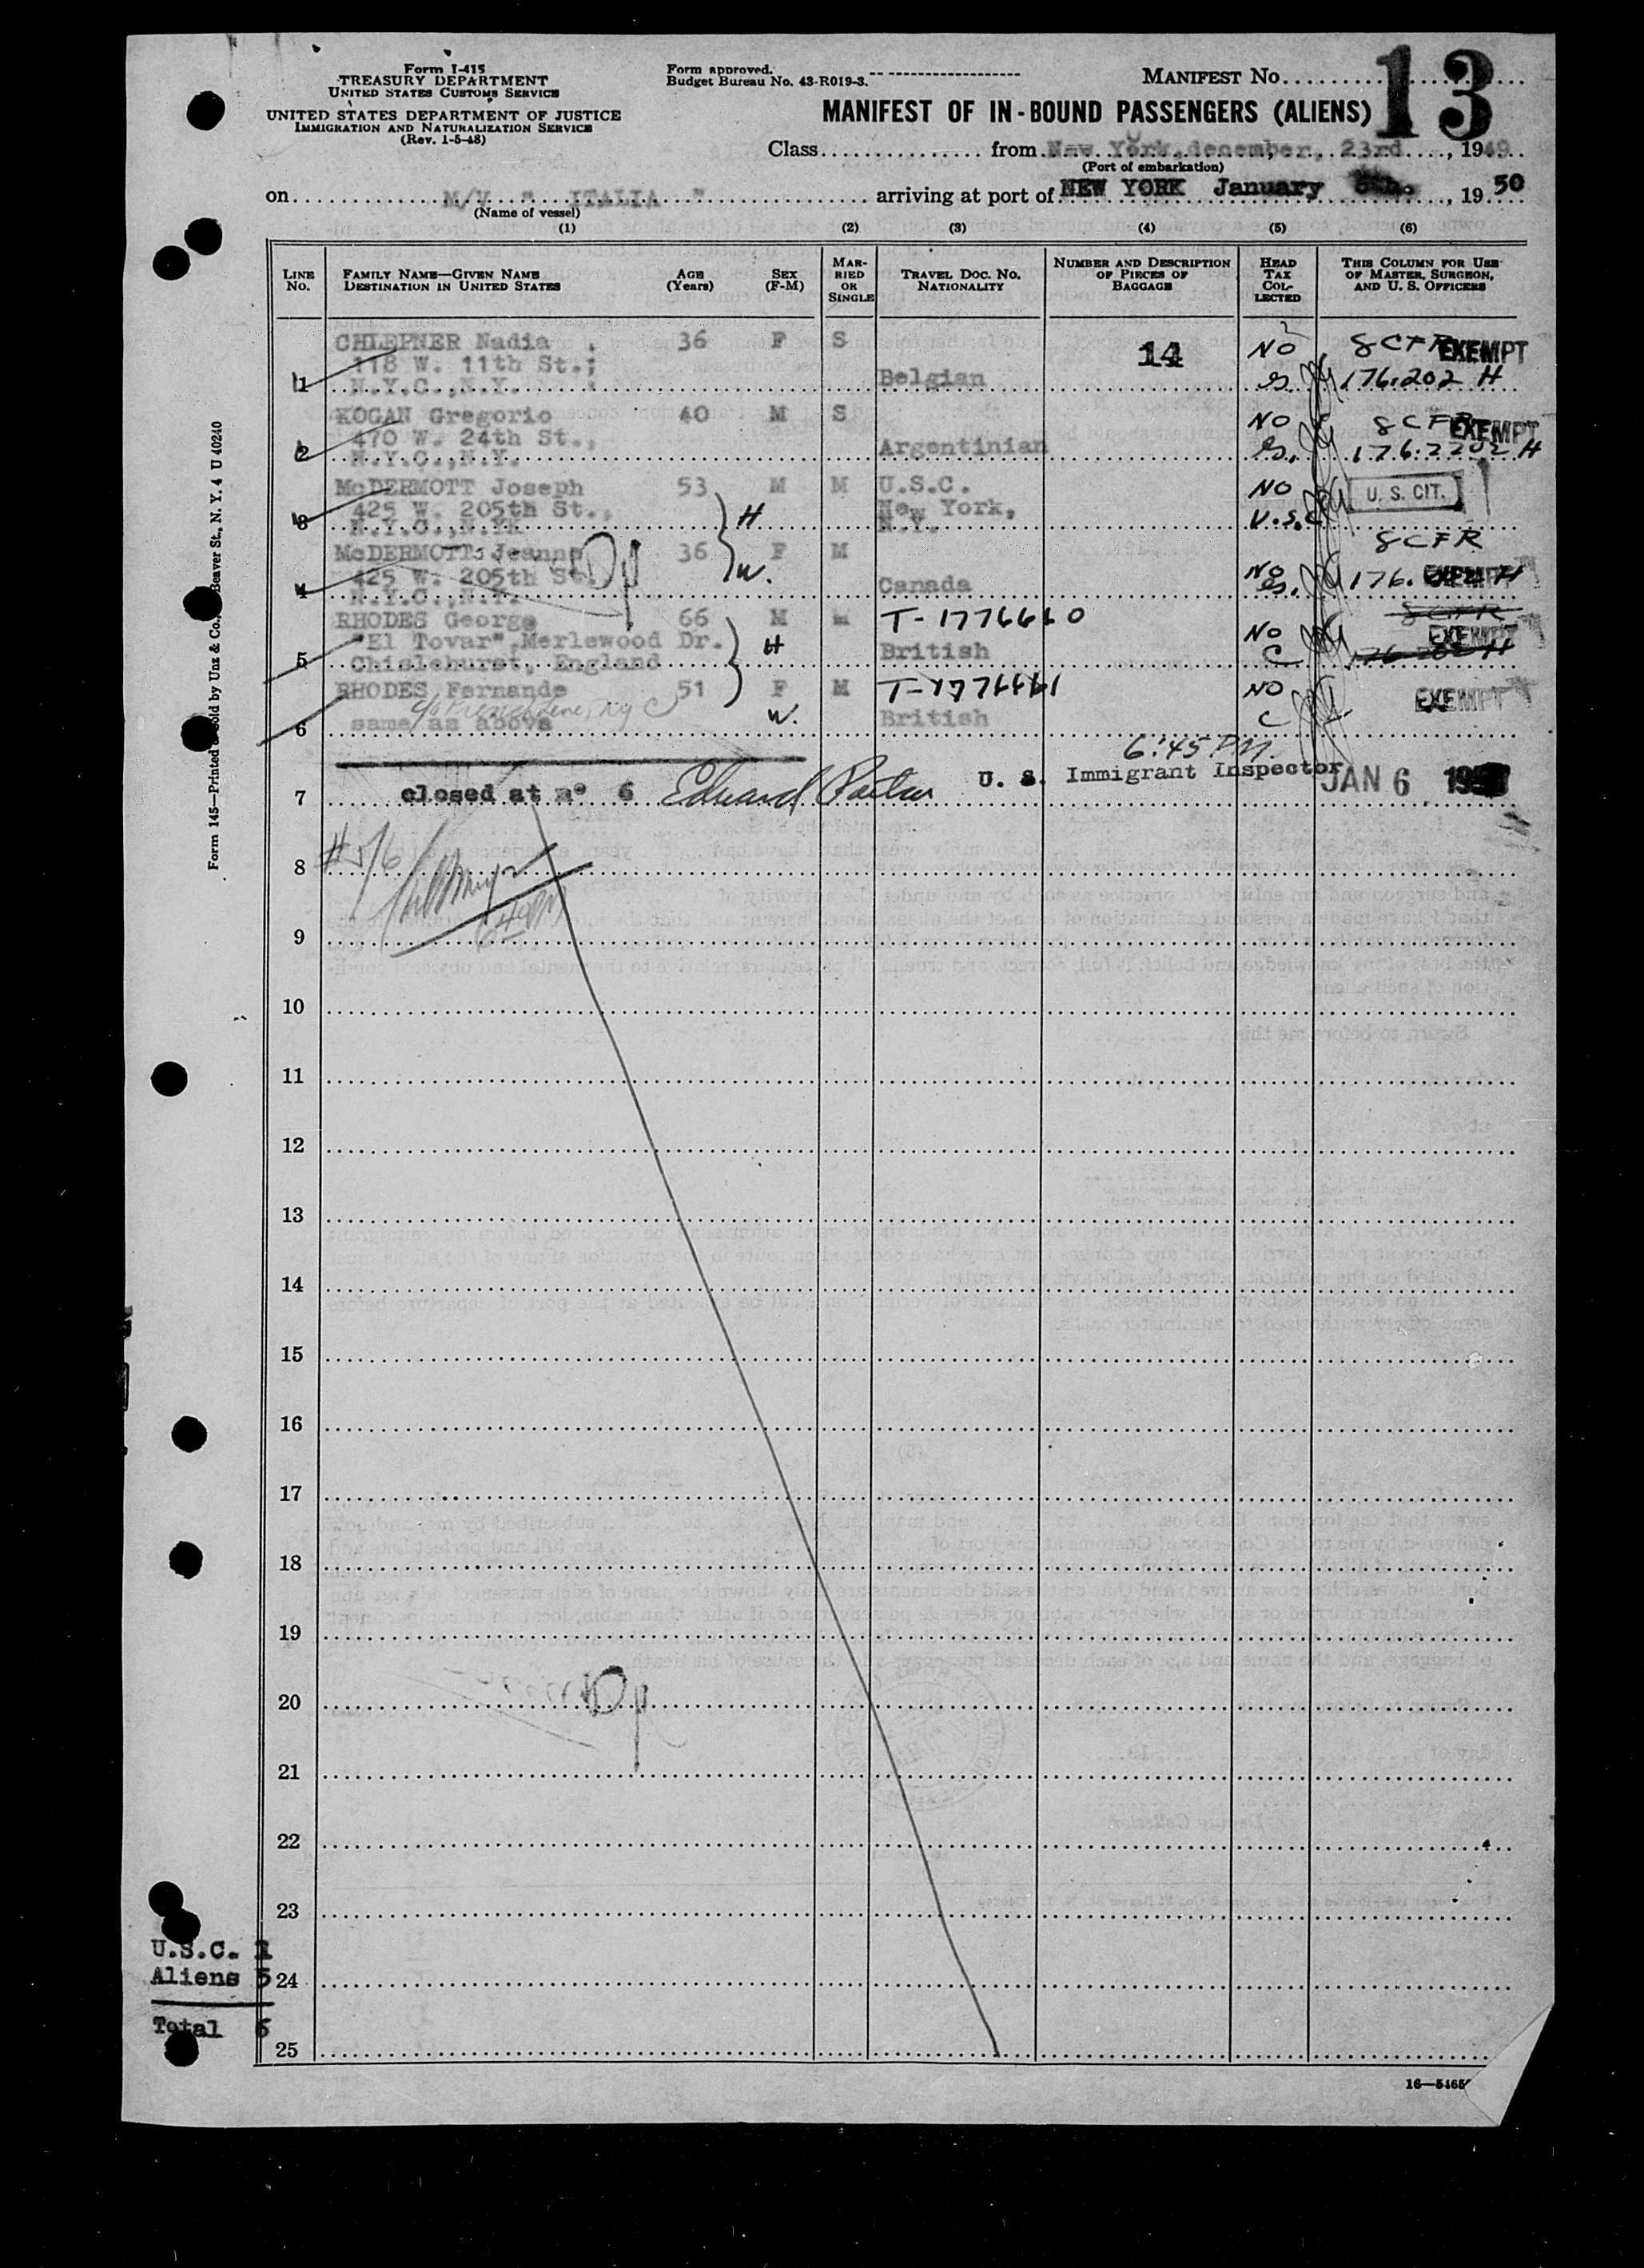 Form I-415
TREASURY DEPARTMENT
UNITED STATES CUSTOMS SERVICE
UNITED STATES DEPARTMENT OF JUSTICE
IMMIGRATION AND NATURALIZATION SERVICE
(Rev. 1-5-48)
Form approved.
Budget Bureau No. 43-R019-3.
MANIFEST No. 13
MANIFEST OF IN-BOUND PASSENGERS (ALIENS)
Class from New York, december, 23rd, 1949
(Port of embarkation)
on M/V " ITALIA " arriving at port of NEW YORK January , 19 50
(Name of vessel)
(1) (2) (3) (4) (5) (6)
LINE No. FAMILY NAME—GIVEN NAME DESTINATION IN UNITED STATES AGE (Years) SEX (F-M) MARRIED OR SINGLE TRAVEL DOC. NO. NATIONALITY NUMBER AND DESCRIPTION OF PIECES OF BAGGAGE HEAD TAX COLLECTED THIS COLUMN FOR USE OF MASTER, SURGEON, AND U. S. OFFICERS
CHLEPNER Nadia 36 F S 14 NO 8 CFR EXEMPT
118 W. 11th St.;
1 N.Y.C.,N.Y. Belgian 176.202 H
KOGAN Gregorio 40 M S NO 8 CFR EXEMPT
470 W. 24th St.,
2 N.Y.C.,N.Y. Argentinian 176.2202 H
McDERMOTT Joseph 53 M M U.S.C. NO U. S. CIT.
425 W. 205th St., New York,
3 N.Y.C.,N.YK H N.Y. U.S.C
McDERMOTT Jeanne 36 F M 8 CFR
425 W. 205th St. W. Canada NO 176. EXEMPT H
4 N.Y.C.,N.Y.
RHODES George 66 M M T-1776660 8 CFR
"El Tovar",Merlewood Dr. H NO EXEMPT
5 Chislehurst, England British C 176.202 H
RHODES Fernande 51 F M T-1776661 NO EXEMPT
c/o French Line, NYC
6 same as above W. British C
6:45 PM.
7 closed at n° 6 Edward U. S. Immigrant Inspector JAN 6
#5/6
8
9
10
11
12
13
14
15
16
17
18
19
20
21
22
23
U.S.C. 1
Aliens 5 24
Total 6
25
Form 145—Printed & Sold by Unz & Co., Beaver St., N. Y. 4 U 40240